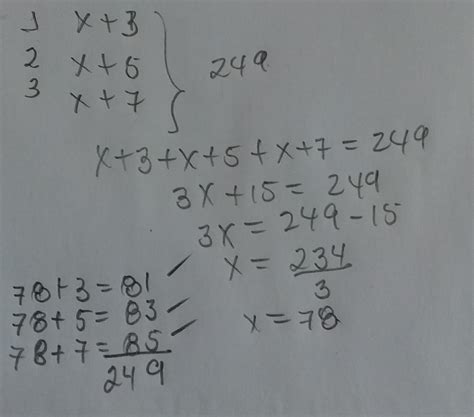 1 x+3
2 x+5
3 x+7
249
x+3+x+5+x+7=249
3x+15=249
3x=249-15
x=234/3
x=78
78+3=81
78+5=83
78+7=85
249